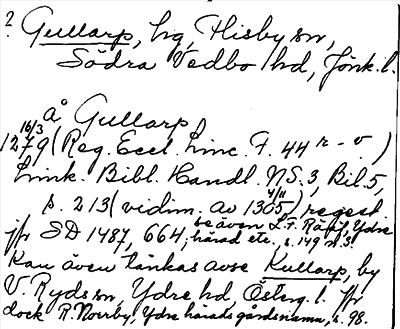 ? Gullarp, hg, Flisby sn,
Södra Vedbo hd, Jönk. l.
å Gullarp
16/3
1279 (Reg. Eccl. Linc. F. 44 r - v.)
Link. Bibl. Handl. N.S. 3, Bil. 5,
s. 213 (vidim. av 4/11 1305), regest.
se även L.F. Rääf, Ydre
jfr SD 1487, 664, härad etc. s. 149 n. 3
Kan även tänkas avse Kullarp, by
V. Ryds sn, Ydre hd, Österg. l. jfr
dock R. Norrby, Ydre härads gårdsnamn, s. 98.